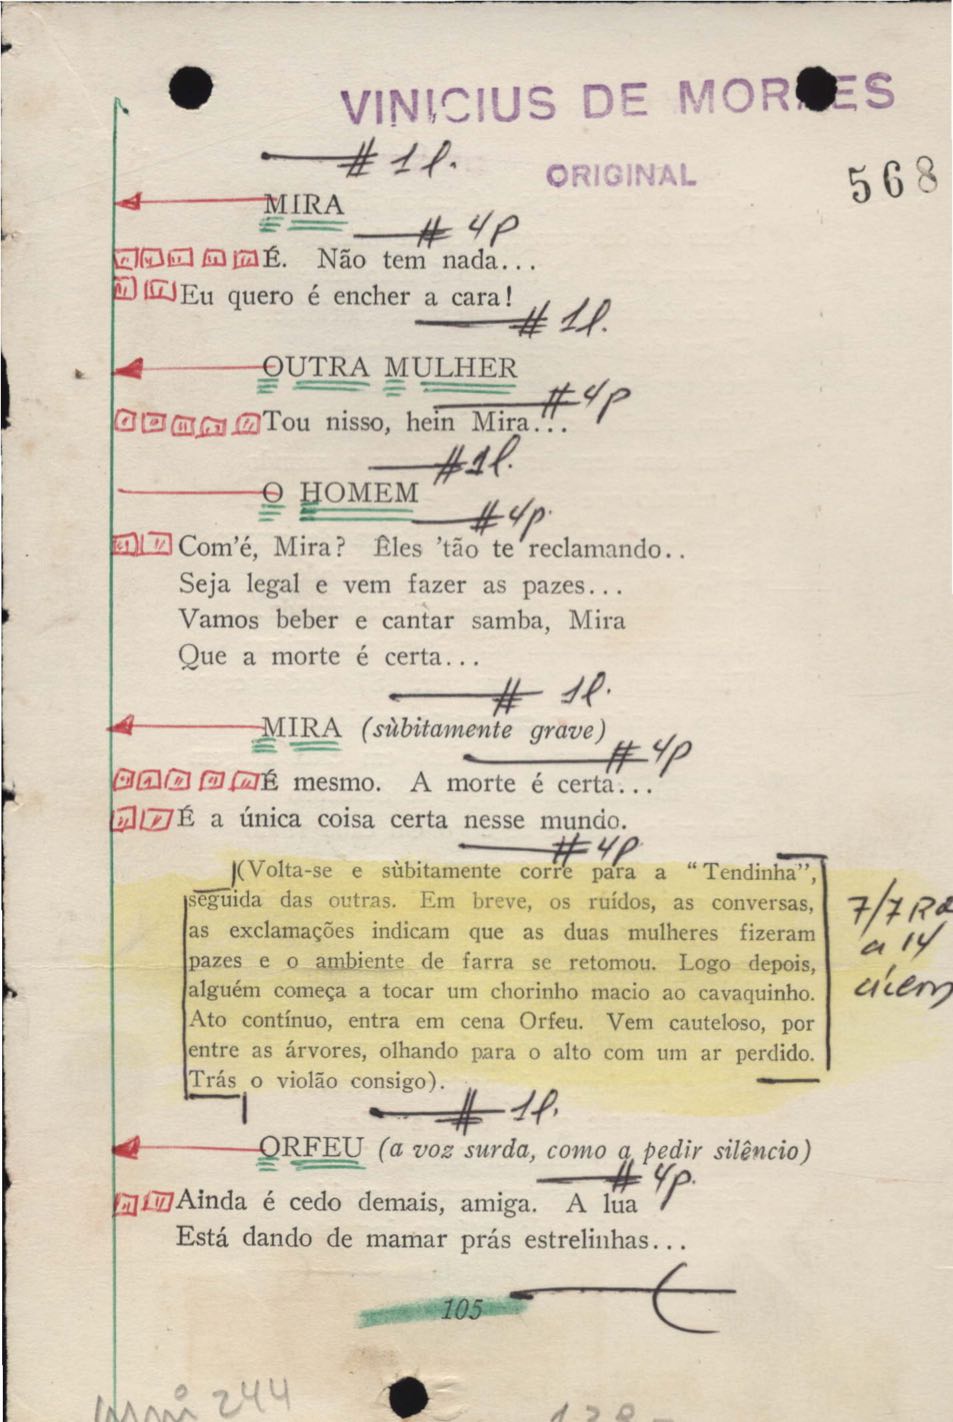 VINICIUS DE MORAES
# 1 l.
ORIGINAL
568
MIRA
# 4p
É. Não tem nada...
Eu quero é encher a cara!
# 1l.
OUTRA MULHER
# 4p
Tou nisso, hein Mira...
# 1l.
O HOMEM
# 4p.
Com'é, Mira? Êles 'tão te reclamando..
Seja legal e vem fazer as pazes...
Vamos beber e cantar samba, Mira
Que a morte é certa...
# 1l.
MIRA (sùbitamente grave)
# 4p
É mesmo. A morte é certa...
É a única coisa certa nesse mundo.
# 4p
(Volta-se e sùbitamente corre para a "Tendinha",
seguida das outras. Em breve, os ruídos, as conversas,
as exclamações indicam que as duas mulheres fizeram
pazes e o ambiente de farra se retomou. Logo depois,
alguém começa a tocar um chorinho macio ao cavaquinho.
Ato contínuo, entra em cena Orfeu. Vem cauteloso, por
entre as árvores, olhando para o alto com um ar perdido.
Trás o violão consigo).
7/7 Rd
a 14
cícero
# 1l.
ORFEU (a voz surda, como a pedir silêncio)
# 4p.
Ainda é cedo demais, amiga. A lua
Está dando de mamar prás estrelinhas...
105
244